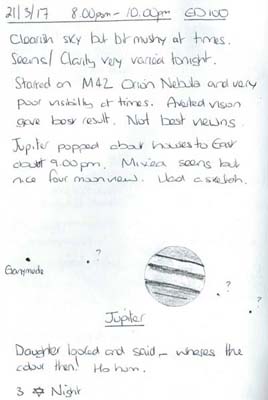 21/3/17 8.00pm - 10.00pm ED100
Clearish sky but bit mushy at times.
Seeing/Clarity very varied tonight.
Started on M42 Orion Nebula and very
poor visibility at times. Averted vision
gave best result. Not best viewing.
Jupiter popped about houses to East
about 9.00pm. Mixed seeing but
nice four moon view. Had a sketch.
?
Ganymede
?
?
Jupiter
Daughter looked and said - wheres the
colour then! Ho hum.
3 ✡ Night